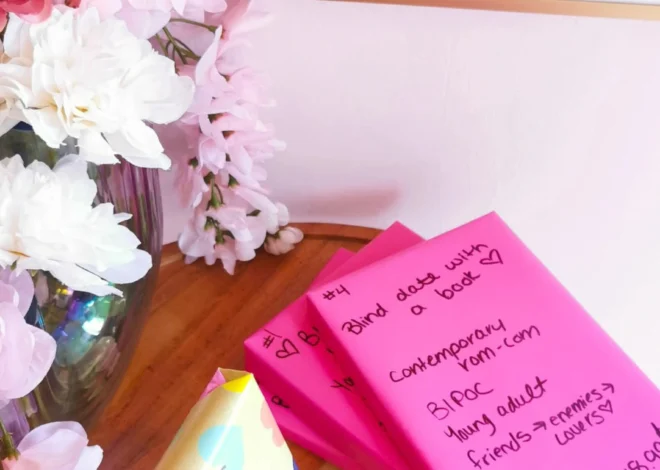 #4
Blind date with
a book ♡
Contemporary
rom-com
BIPOC
Young adult
friends → enemies →
lovers ♡